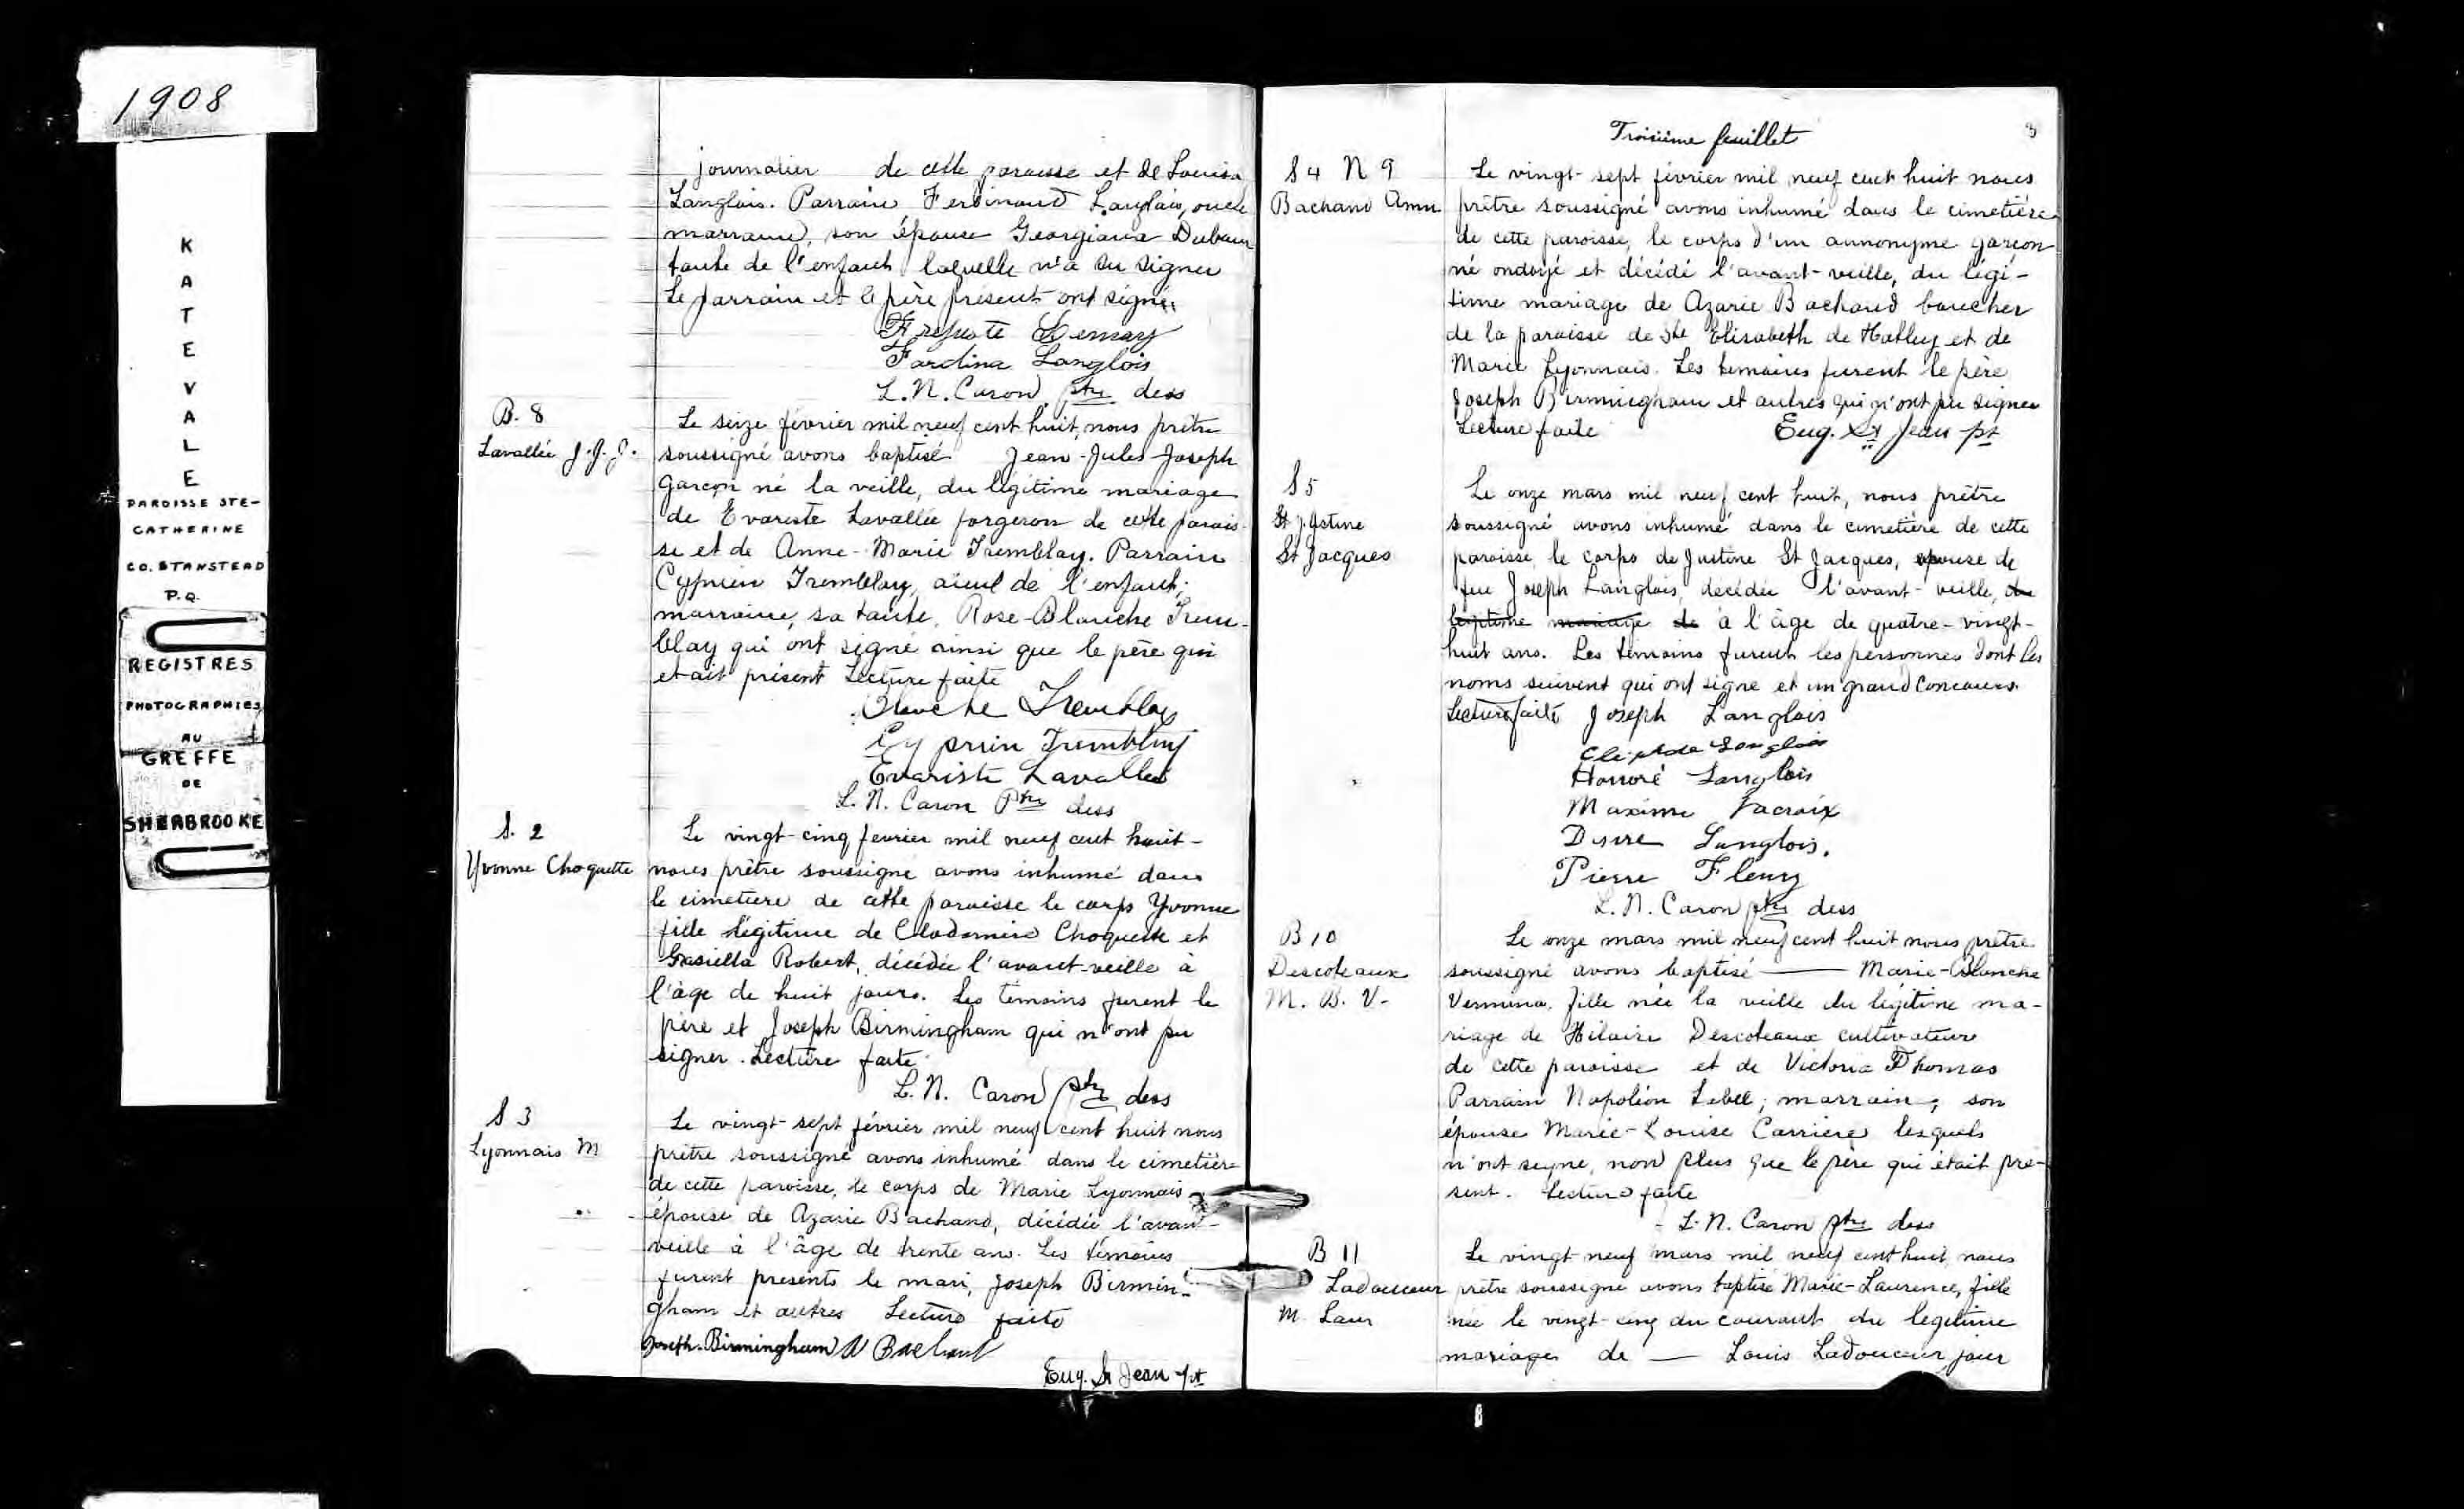 1908
K
A
T
E
V
A
L
E
PAROISSE STE-
CATHERINE
CO. STANSTEAD
P.Q.
REGISTRES
PHOTOGRAPHIES
AU
GREFFE
DE
SHERBROOKE
journalier de cette paroisse et de Louisa
Langlois. Parrain Ferdinand Langlois, oncle
marraine, son épouse Georgiana
tante de l'enfant laquelle n'a su signer
Le parrain et le père présent ont signé.
Lemay
Langlois
L. N. Caron ptre dess
B. 8
Lavallée J. J. J.
Le seize février mil neuf cent huit, nous prêtre
soussigné avons baptisé Jean-Jules-Joseph
garçon né la veille, du légitime mariage
de Evariste Lavallée forgeron de cette parois-
se et de Anne-Marie Tremblay. Parrain
Cyprien Tremblay, aïeul de l'enfant;
marraine, sa tante, Rose-Blanche Trem-
blay qui ont signé ainsi que le père qui
etait présent Lecture faite
Blanche Tremblay
Cyprien Tremblay
Evariste Lavallée
L. N. Caron Ptre dess
S. 2
Yvonne Choquette
Le vingt-cinq fevrier mil neuf cent huit-
nous prêtre soussigné avons inhumé dans
le cimetiere de cette paroisse le corps Yvonne
fille légitime de Clodomire Choquette et
Robert, décédée l'avant-veille à
l'âge de huit jours. Les témoins furent le
père et Joseph Birmingham qui n'ont pu
signer. Lecture faite
L. N. Caron ptre dess
S 3
Lyonnais M
Le vingt-sept février mil neuf cent huit nous
prêtre soussigné avons inhumé dans le cimetière
de cette paroisse, le corps de Marie Lyonnais
épouse de Azarie Bachand, décédée l'avant-
veille à l'âge de trente ans. Les témoins
furent presents le mari, Joseph Birmin-
gham et autres Lecture faite
Joseph Birmingham A Bachand
Eug. St Jean pt
Troisième feuillet 3
S 4 N 9
Bachand Ann
Le vingt-sept février mil neuf cent huit nous
prêtre soussigné avons inhumé dans le cimetière
de cette paroisse, le corps d'un annonyme garçon
né ondoyé et décédé l'avant-veille, du légi-
time mariage de Azarie Bachand boucher
de la paroisse de Ste Elisabeth de Hatley et de
Marie Lyonnais. Les temoins furent le père
Joseph Birmingham et autres qui n'ont pu signer
Lecture faite Eug. St Jean pt
S 5
St Justine
St Jacques
Le onze mars mil neuf cent huit, nous prêtre
soussigné avons inhumé dans le cimetière de cette
paroisse le corps de Justine St Jacques, epouse de
feu Joseph Langlois, décédée l'avant-veille, du
légitime mariage de à l'âge de quatre-vingt-
huit ans. Les témoins furent les personnes dont les
noms suivent qui ont signé et un grand concours.
Lecture faite Joseph Langlois
Langlois
Honoré Langlois
Maxime Lacroix
Langlois.
Pierre Fleury
L. N. Caron ptre dess
B 10
Descoteaux
M. B. V-
Le onze mars mil neuf cent huit nous prêtre
soussigné avons baptisé — Marie-Blanche
Vermina. fille née la veille du légitime ma-
riage de Hilaire Descoteaux cultivateur
de cette paroisse et de Victoria Thomas
Parrain Napoléon Lebel; marraine, son
épouse Marie-Louise Carriere lesquels
n'ont signé, non plus que le père qui était pré-
sent. Lecture faite
L. N. Caron ptre dess
B 11
Ladouceur
M. Laur
Le vingt-neuf mars mil neuf cent huit, nous
prêtre soussigné avons baptisé Marie-Laurence, fille
née le vingt-cinq du courant du legitime
mariage de — Louis Ladouceur, jour